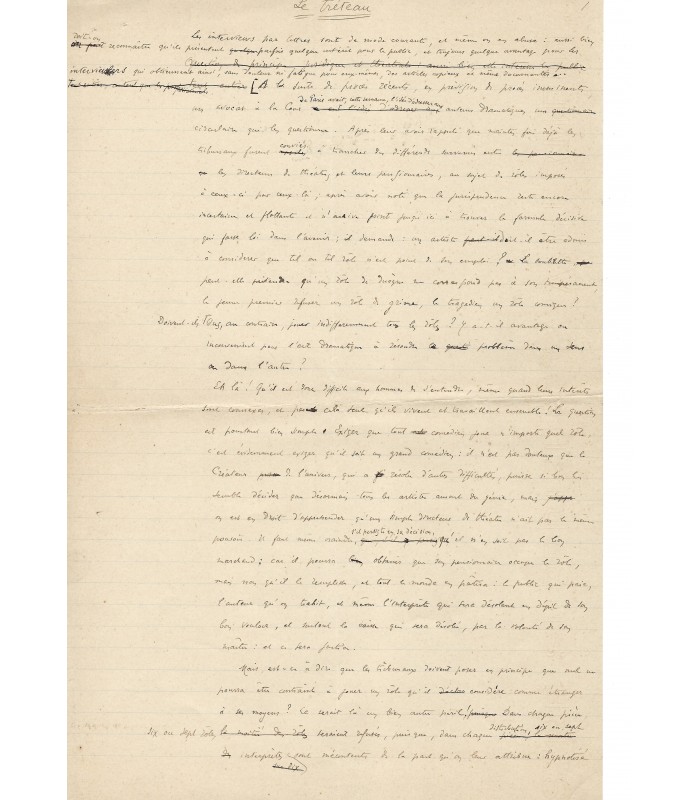 Le Tréteau
1
Les interviews par lettres sont de mode courante, et même on en abuse : aussi bien
doit-on reconnaître qu'ils présentent parfois quelque intérêt pour le public, et toujours quelque avantage pour les
interviewers qui obtiennent ainsi, sans dépense ni fatigue pour eux-mêmes, des articles copieux et même documentés.
[A la suite de procès récents, en prévision de procès imminents,
un avocat à la Cour de Paris avait, cette semaine, l'idée d'adresser aux auteurs dramatiques une
circulaire qui les questionne. Après leur avoir rappelé que maintes fois déjà les
tribunaux furent conviés à trancher des différends survenus entre
les directeurs de théâtre, et leurs pensionnaires, au sujet de rôles imposés
à ceux-ci par ceux-là ; après avoir noté que la jurisprudence reste encore
incertaine et flottante et n'a point jusqu'ici trouvé la formule décisive
qui fasse loi dans l'avenir ; il demande : un artiste doit-il être admis
à considérer que tel ou tel rôle n'est point de son emploi ? La soubrette
peut-elle prétendre qu'un rôle de duègne ne correspond pas à son tempérament,
le jeune premier refuser un rôle de grime, le tragédien un rôle comique ?
Doivent-ils tous, au contraire, jouer indifféremment tous les rôles ? Y a-t-il avantage ou
inconvénient pour l'art dramatique à résoudre le problème dans un sens
ou dans l'autre ?
Eh là ! Qu'il est donc difficile aux hommes de s'entendre, même quand leurs intérêts
sont connexes, et par cela seul qu'ils vivent et travaillent ensemble ! La question
est pourtant bien simple. Exiger que tout comédien joue n'importe quel rôle,
c'est évidemment exiger qu'il soit un grand comédien : il n'est pas douteux que le
Créateur de l'univers, qui a résolu d'autres difficultés, puisse si bon lui
semble décider que désormais tous les artistes auront du génie, mais
on est en droit d'appréhender qu'un simple directeur de théâtre n'ait pas le même
pouvoir. Il faut même craindre, s'il persiste en sa décision, qu'il n'en soit pas le bon
marchand ; car il pourra obtenir que son pensionnaire occupe le rôle,
mais non qu'il le remplisse, et tout le monde en pâtira : le public qui paie,
l'auteur qu'on trahit, et même l'interprète qui sera désolant en dépit de son
bon vouloir, et surtout la caisse qui sera désolée, par la volonté de son
maître : et ce sera justice.
Mais est-ce à dire que les tribunaux doivent poser en principe que nul ne
pourra être contraint à jouer un rôle qu'il considère comme étranger
à ses moyens ? Ce serait là un bien autre péril ! Dans chaque pièce
six ou sept rôles seraient refusés, puisque, dans chaque distribution, six ou sept
interprètes sont mécontents de la part qu'on leur attribue : hypnotisé